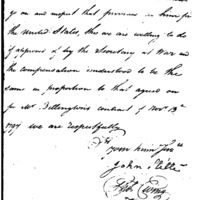 go on and inspect that provisions in
the United States, this we are willing to do
if approved of by the Secretary at War and
the compensation understood to be the
same in proportion to that agreed on
for Mr Dillingham's contract of Novr 13th
1797 we are respectfully
John